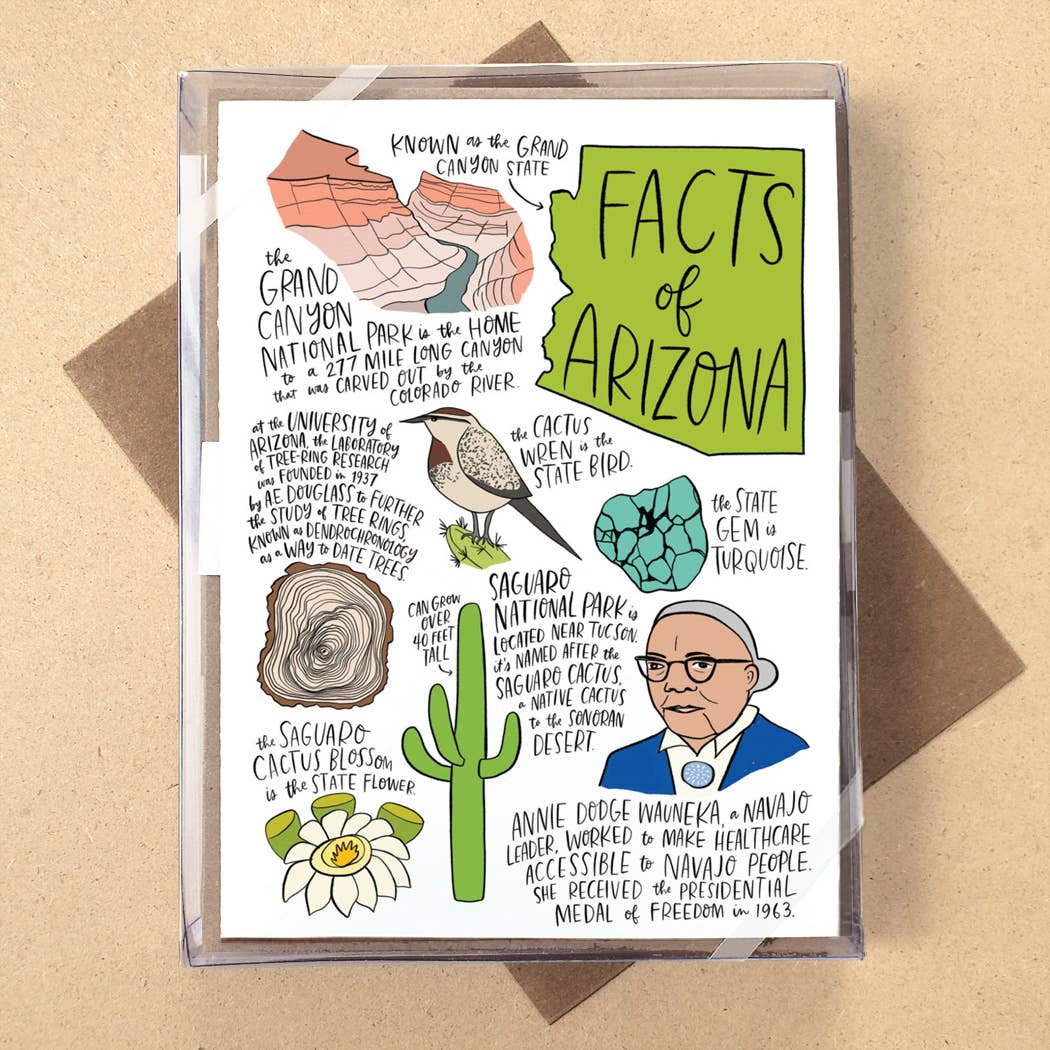 KNOWN as the GRAND
CANYON STATE
FACTS
of
ARIZONA
the
GRAND
CANYON
NATIONAL PARK is the HOME
to a 277 MILE LONG CANYON
that was CARVED OUT by the
COLORADO RIVER.
at the UNIVERSITY of
ARIZONA, the LABORATORY
of TREE-RING RESEARCH
was FOUNDED in 1937
by A.E. DOUGLASS to FURTHER
the STUDY of TREE RINGS,
KNOWN as DENDROCHRONOLOGY
as a WAY to DATE TREES.
the CACTUS
WREN is the
STATE BIRD.
the STATE
GEM is
TURQUOISE.
CAN GROW
OVER
40 FEET
TALL
SAGUARO
NATIONAL PARK is
LOCATED NEAR TUCSON.
it's NAMED AFTER the
SAGUARO CACTUS,
a NATIVE CACTUS
to the SONORAN
DESERT.
the SAGUARO
CACTUS BLOSSOM
is the STATE FLOWER.
ANNIE DODGE WAUNEKA, a NAVAJO
LEADER, WORKED to MAKE HEALTHCARE
ACCESSIBLE to NAVAJO PEOPLE.
SHE RECEIVED the PRESIDENTIAL
MEDAL of FREEDOM in 1963.